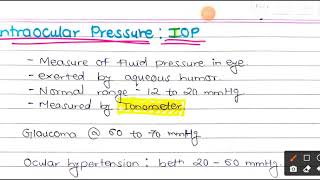 ntraocular Pressure : IOP
- Measure of fluid pressure in eye
- exerted by aqueous humor.
- Normal range - 12 to 20 mmHg
- Measured by Tonometer
Glaucoma @ 60 to 70 mmHg
Ocular hypertension : betn 20 - 60 mmHg.